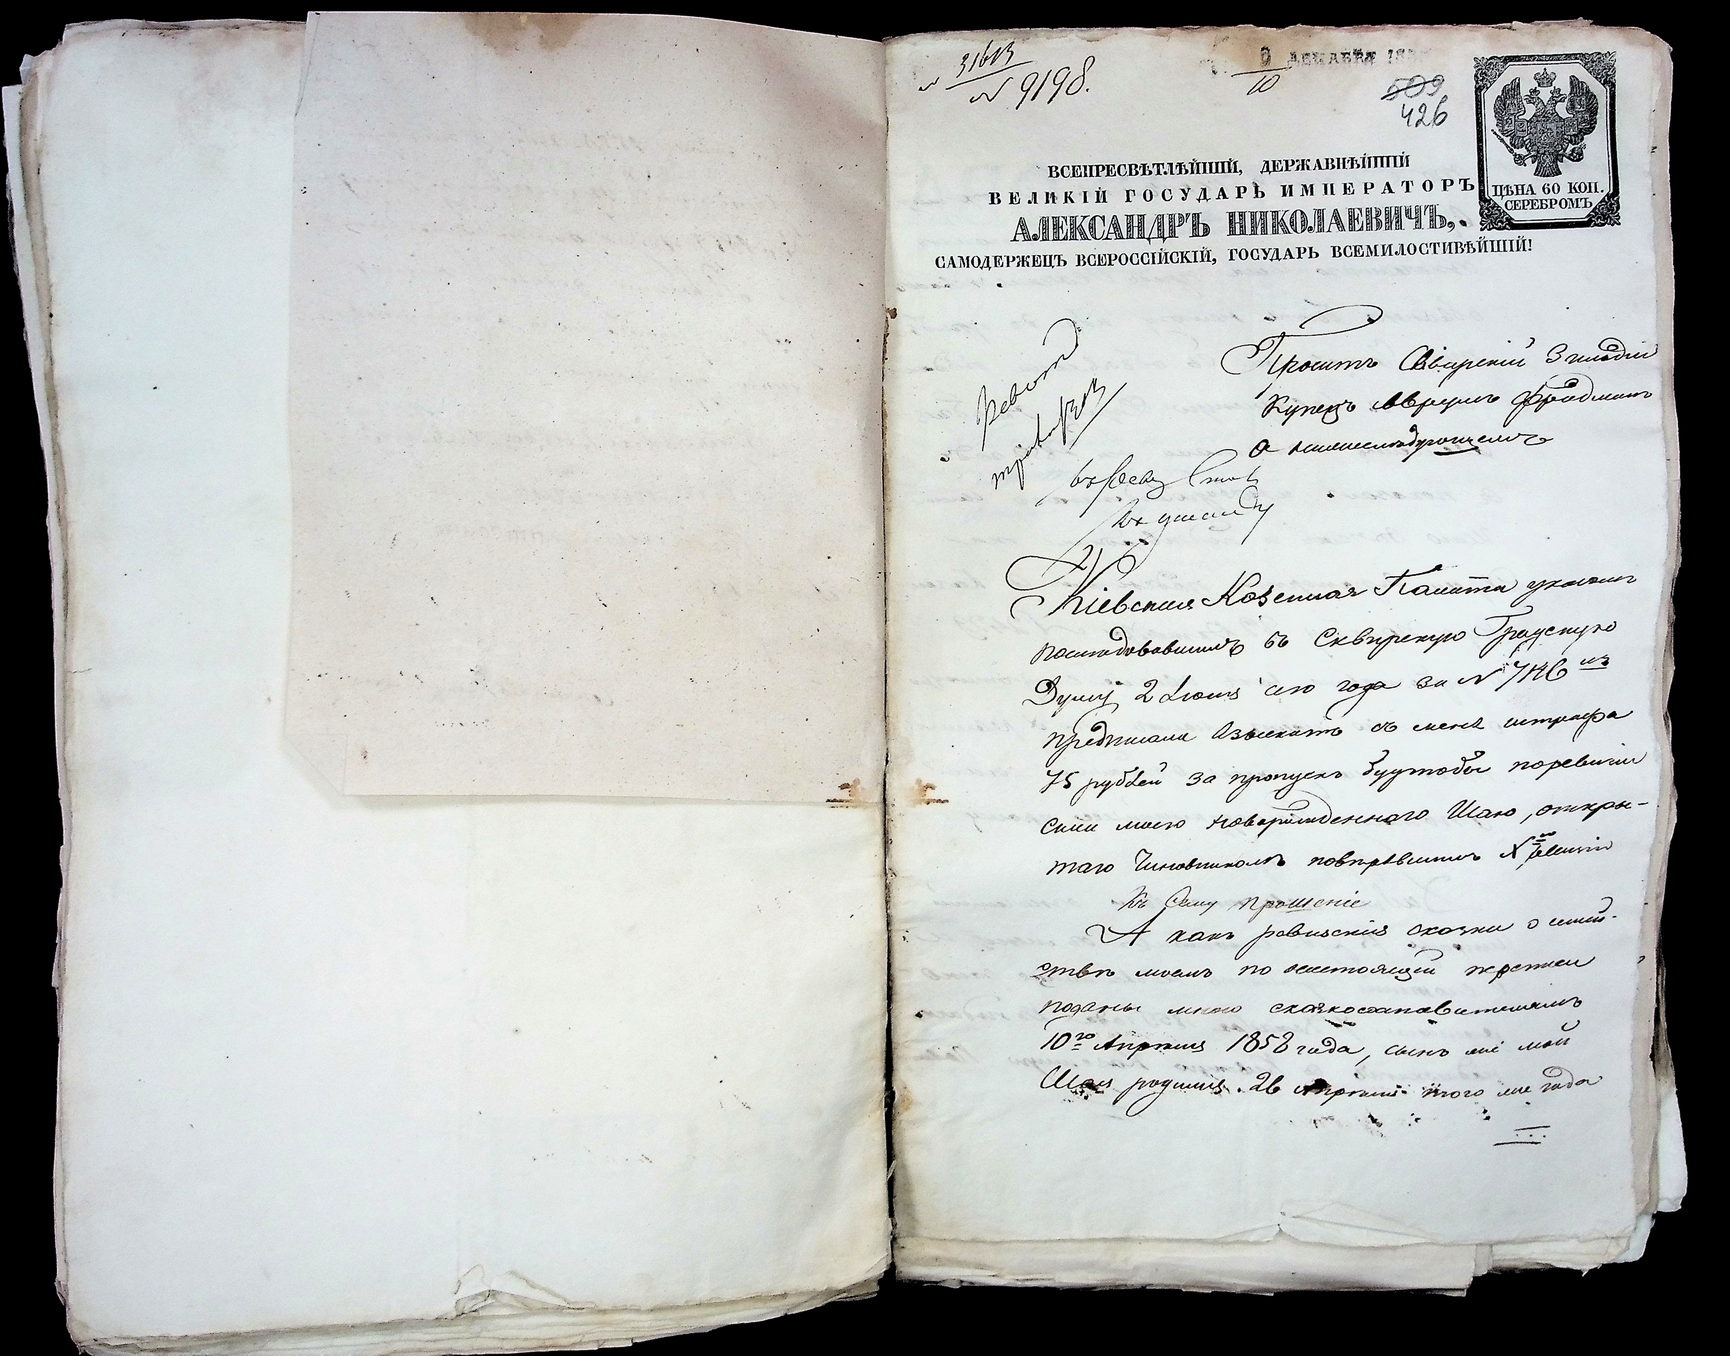 31613
№ 9198.
9 ДЕКАБРЯ
10
509
426
ЦѢНА 60 КОП.
СЕРЕБРОМЪ
ВСЕПРЕСВѢТЛѢЙШІЙ, ДЕРЖАВНѢЙШІЙ
ВЕЛИКІЙ ГОСУДАРЬ ИМПЕРАТОРЪ
АЛЕКСАНДРЪ НИКОЛАЕВИЧЪ,
САМОДЕРЖЕЦЪ ВСЕРОССІЙСКІЙ, ГОСУДАРЬ ВСЕМИЛОСТИВѢЙШІЙ!
Проситъ Сквирскій 3 гильдіи
Купецъ Аврумъ Фрадманъ
о нижеслѣдующемъ
Кіевская Казенная Палата указомъ
послѣдовавшимъ въ Сквирскую Градскую
Думу 2 Іюня сего года за №
предписала взыскать съ меня штрафа
75 рублей за пропускъ будтобы по ревизіи
сына моего новорожденнаго Шаю, откры-
таго Чиновникомъ повѣрявшимъ X ревизію
Къ Сему прошеніе
А какъ ревизскія сказки о семей-
ствѣ моемъ по настоящей переписи
поданы мною сказкосоставителямъ
10го Апрѣля 1858 года, сынъ же мой
Шая родился 26 Апрѣля того же года